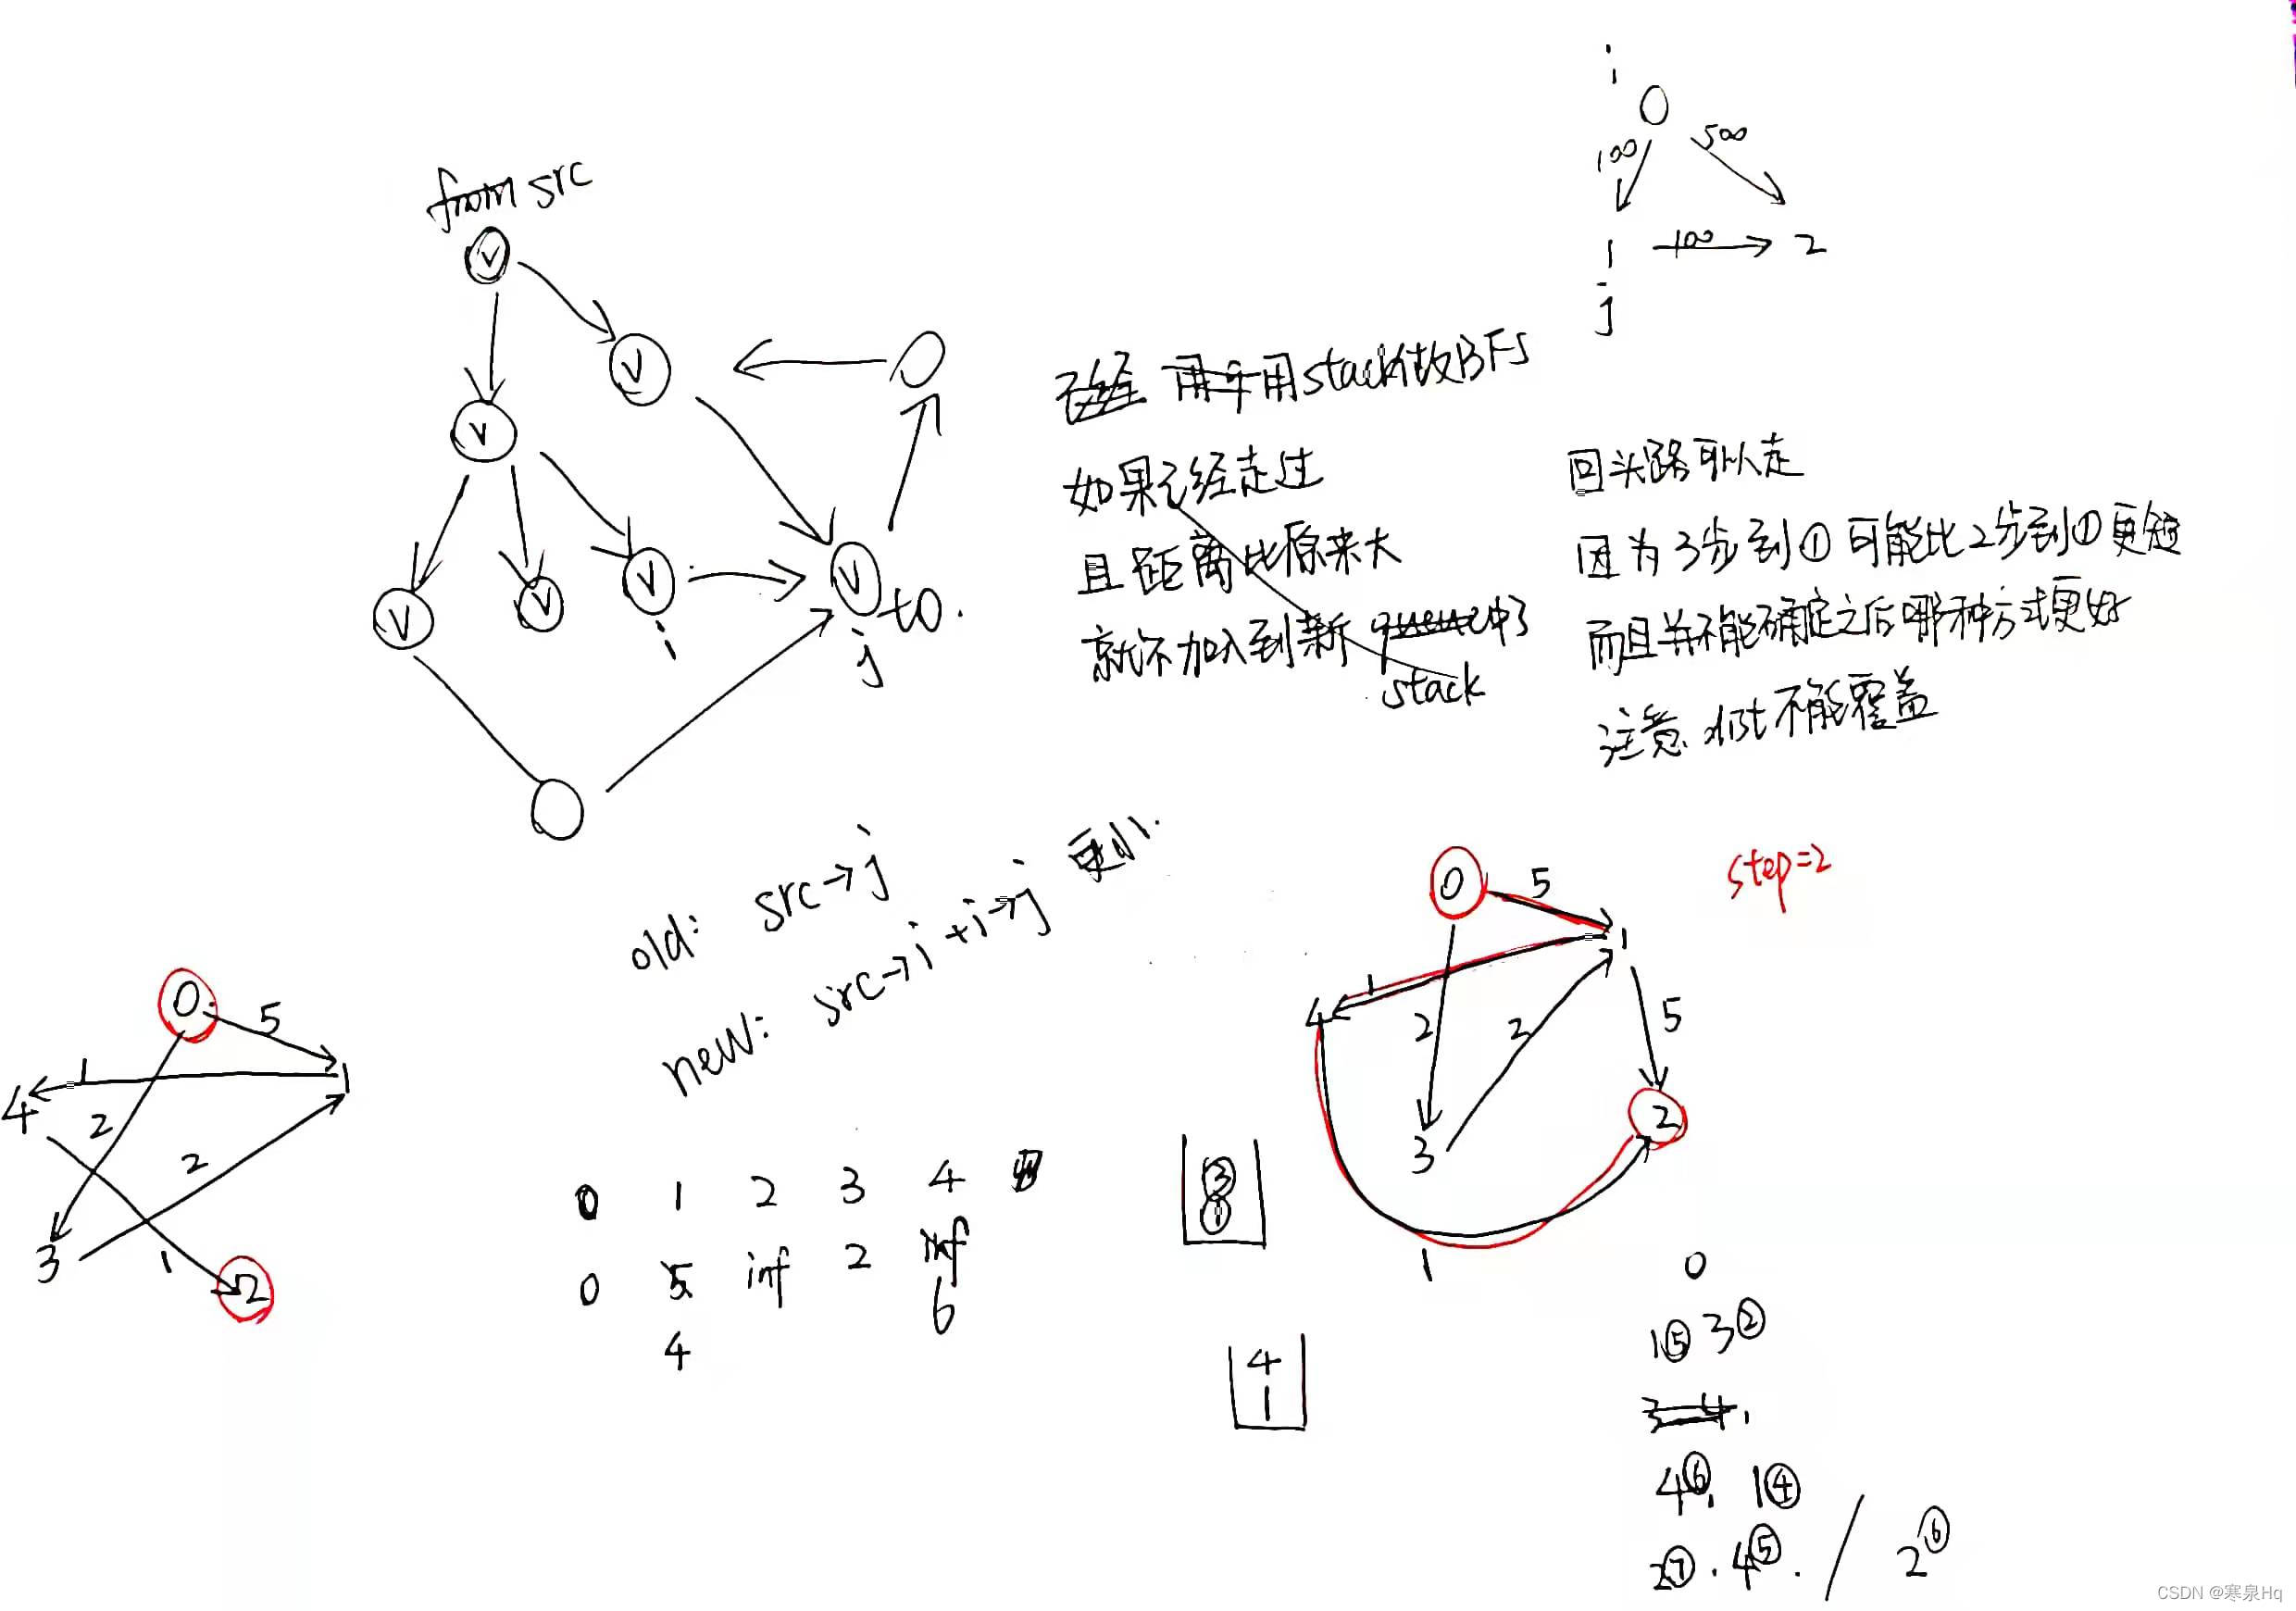 from src
v
v
v
v
v
v
i
v
to.
j
i
0
100
500
1
100
2
j
用牛用stack做BFS
如果已经走过
且距离比原来大
就不加入到新queue中了
stack
回头路可以走
因为3步到①可能比2步到①更短
而且并不能确定之后哪种方式更好
注意dist不能覆盖
old: src→j
new: src→i+i→j 更小.
0
5
1
1
4
2
2
3
1
2
0 1 2 3 4
0 5 inf 2 inf
4 6
3
1
4
1
step=2
0
5
1
1
4
2
2
5
3
2
1
0
1⑤ 3②
3 4.
4⑥. 1④
2⑦. 4⑤. / 2⑥
CSDN @寒泉Hq